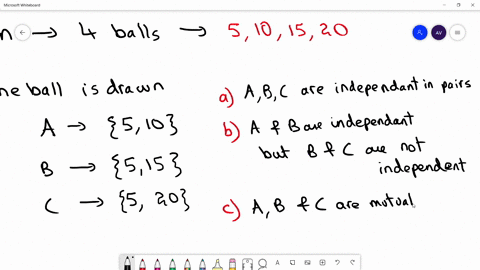 Microsoft Whiteboard
→ 4 balls → 5, 10, 15, 20
ball is drawn
A → {5, 10}
B → {5, 15}
C → {5, 20}
a) A, B, C are independant in pairs
b) A & B are independant
but B & C are not
independent
c) A, B & C are mutual
AV